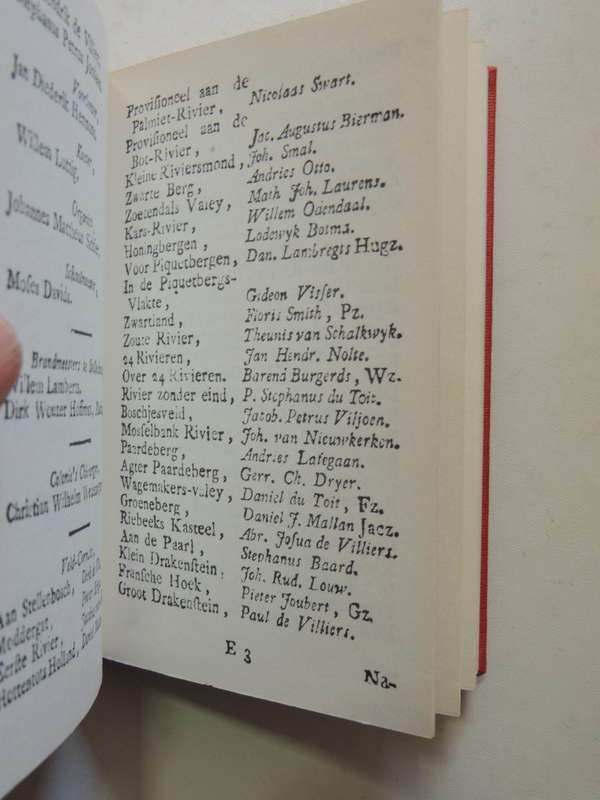 Jan Diederik
Willem Lottig,
Johannes Mattheus
Moses Davids.
Brandmeesters te
Willem Lambern.
Dirk Wouter
Christian Wilhelm
Aan Stellenbosch,
Moddergat,
Eerſte Rivier,
Hottentots Holland,
Proviſioneel aan de
Palmiet-Rivier, Nicolaas Swart.
Proviſioneel aan de
Bot-Rivier, Jac. Augustus Bierman.
Kleine Riviersmond, Joh. Smal.
Zwarte Berg, Andries Otto.
Zoetendals Valey, Math Joh. Laurens.
Kars-Rivier, Willem Odendaal.
Honingbergen, Lodewyk Botms.
Voor Piquetbergen, Dan. Lambregts Hugz.
In de Piquetbergs-
Vlakte, Gideon Viſſer.
Zwartland, Floris Smith, Pz.
Zoute Rivier, Theunis van Schalkwyk.
24 Rivieren, Jan Hendr. Nolte.
Over 24 Rivieren. Barend Burgerds, Wz.
Rivier zonder eind, P. Stephanus du Toit.
Boschjesveld, Jacob. Petrus Viljoen.
Moſſelbank Rivier, Joh. van Nieuwkerken.
Paardeberg, Andries Lategaan.
Agter Paardeberg, Gerr. Ch. Dryer.
Wagemakers-valey, Daniel du Toit, Fz.
Groeneberg, Daniel J. Mallan Jacz.
Riebeeks Kaſteel, Abr. Joſua de Villiers.
Aan de Paarl, Stephanus Baard.
Klein Drakenſtein, Joh. Rud. Louw.
Franſche Hoek, Pieter Joubert, Gz.
Groot Drakenſtein, Paul de Villiers.
E 3
Na-